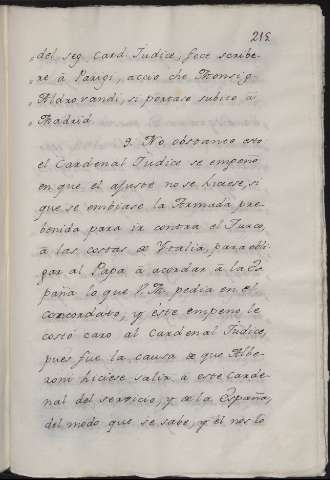 215
„del seg. Card. Iudice, fece scribe-
„re à Parigi, acciò che Monsig.
„Aldrovandi, si portase subito à
„Madrid.
9. No obstante esto
el Cardenal Iudice se empeñó
en que el ajuste no se hiciese, si
que se embiase la Armada pre-
benida para ir contra el Turco,
à las costas de Ytalia, para obli-
gar al Papa à acordar à la Es-
paña lo que S. M. pedia en el
concordato, y éste empeño le
costó caro al Cardenal Iudice,
pues fue la causa de que Albe-
roni hiciese salir à este Carde-
nal del servicio, y de la España,
del modo que se sabe, y él nego